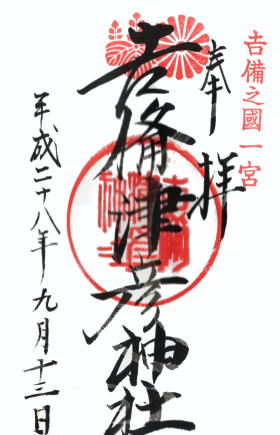 吉備之國一宮
奉拝
吉備津彦神社
平成二十八年九月十三日